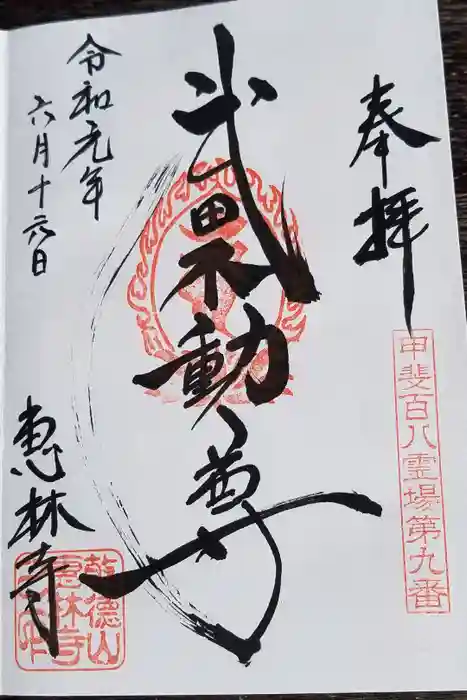 奉拝
甲斐百八霊場第九番
武田不動尊
令和元年
六月十六日
恵林寺
乾徳山
恵林寺